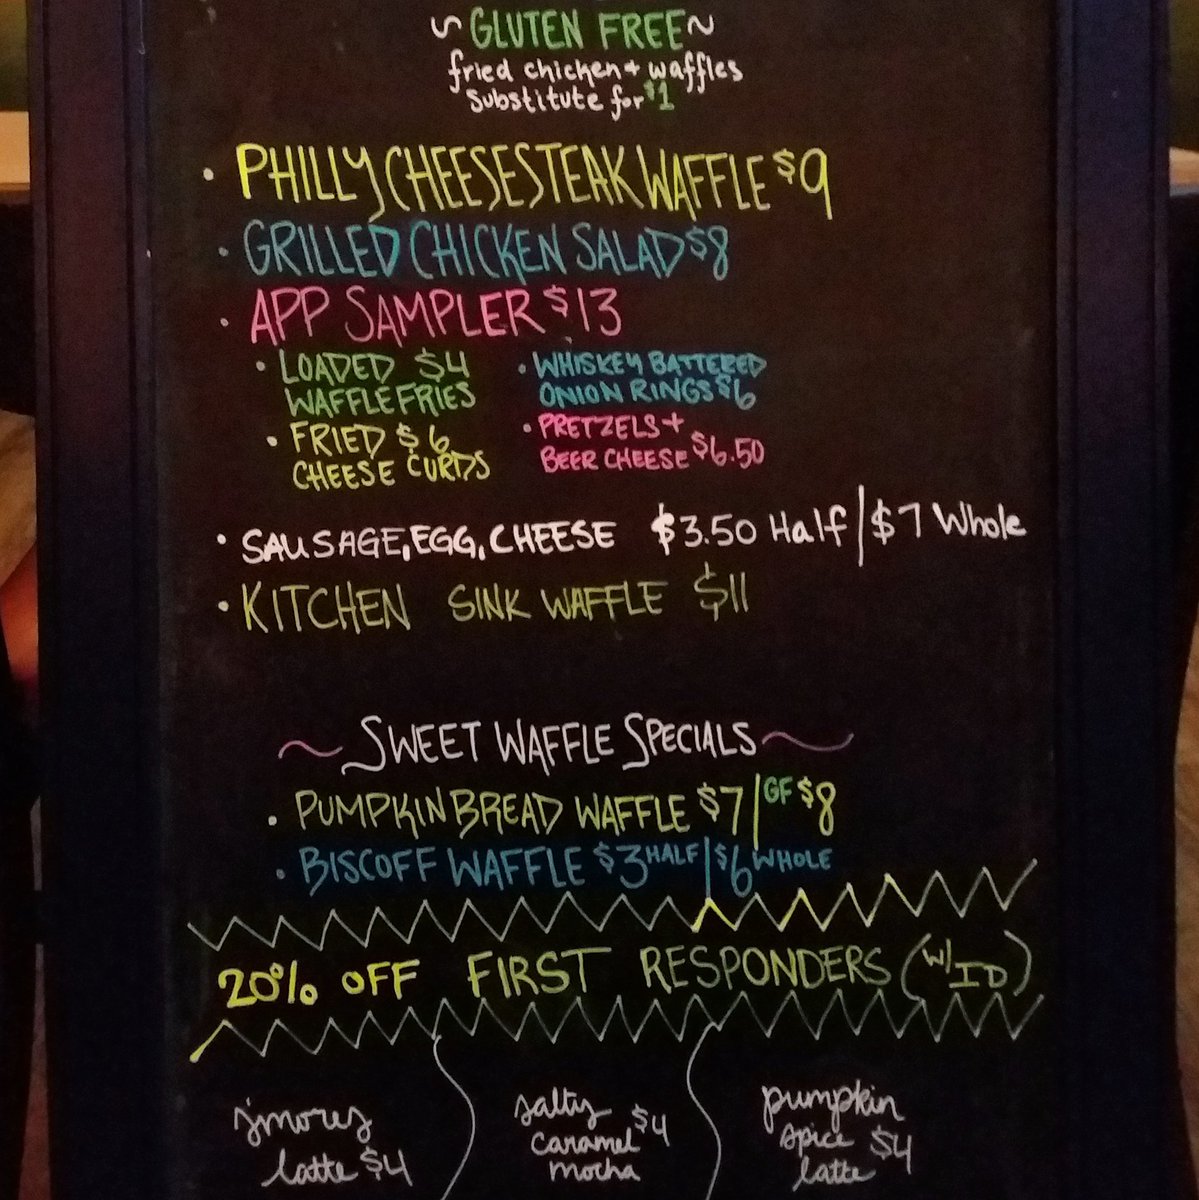 ~ GLUTEN FREE ~
fried chicken + waffles
substitute for $1
• PHILLY CHEESESTEAK WAFFLE $9
• GRILLED CHICKEN SALAD $8
• APP SAMPLER $13
• LOADED $4
WAFFLE FRIES
• FRIED $6
CHEESE CURDS
• WHISKEY BATTERED
ONION RINGS $6
• PRETZELS +
BEER CHEESE $6.50
• SAUSAGE, EGG, CHEESE $3.50 Half | $7 Whole
• KITCHEN SINK WAFFLE $11
~ SWEET WAFFLE SPECIALS ~
• PUMPKIN BREAD WAFFLE $7 | GF $8
• BISCOFF WAFFLE $3 HALF | $6 WHOLE
20% OFF FIRST RESPONDERS (W/ ID)
s'mores
latte $4
salty
caramel $4
mocha
pumpkin
spice $4
latte